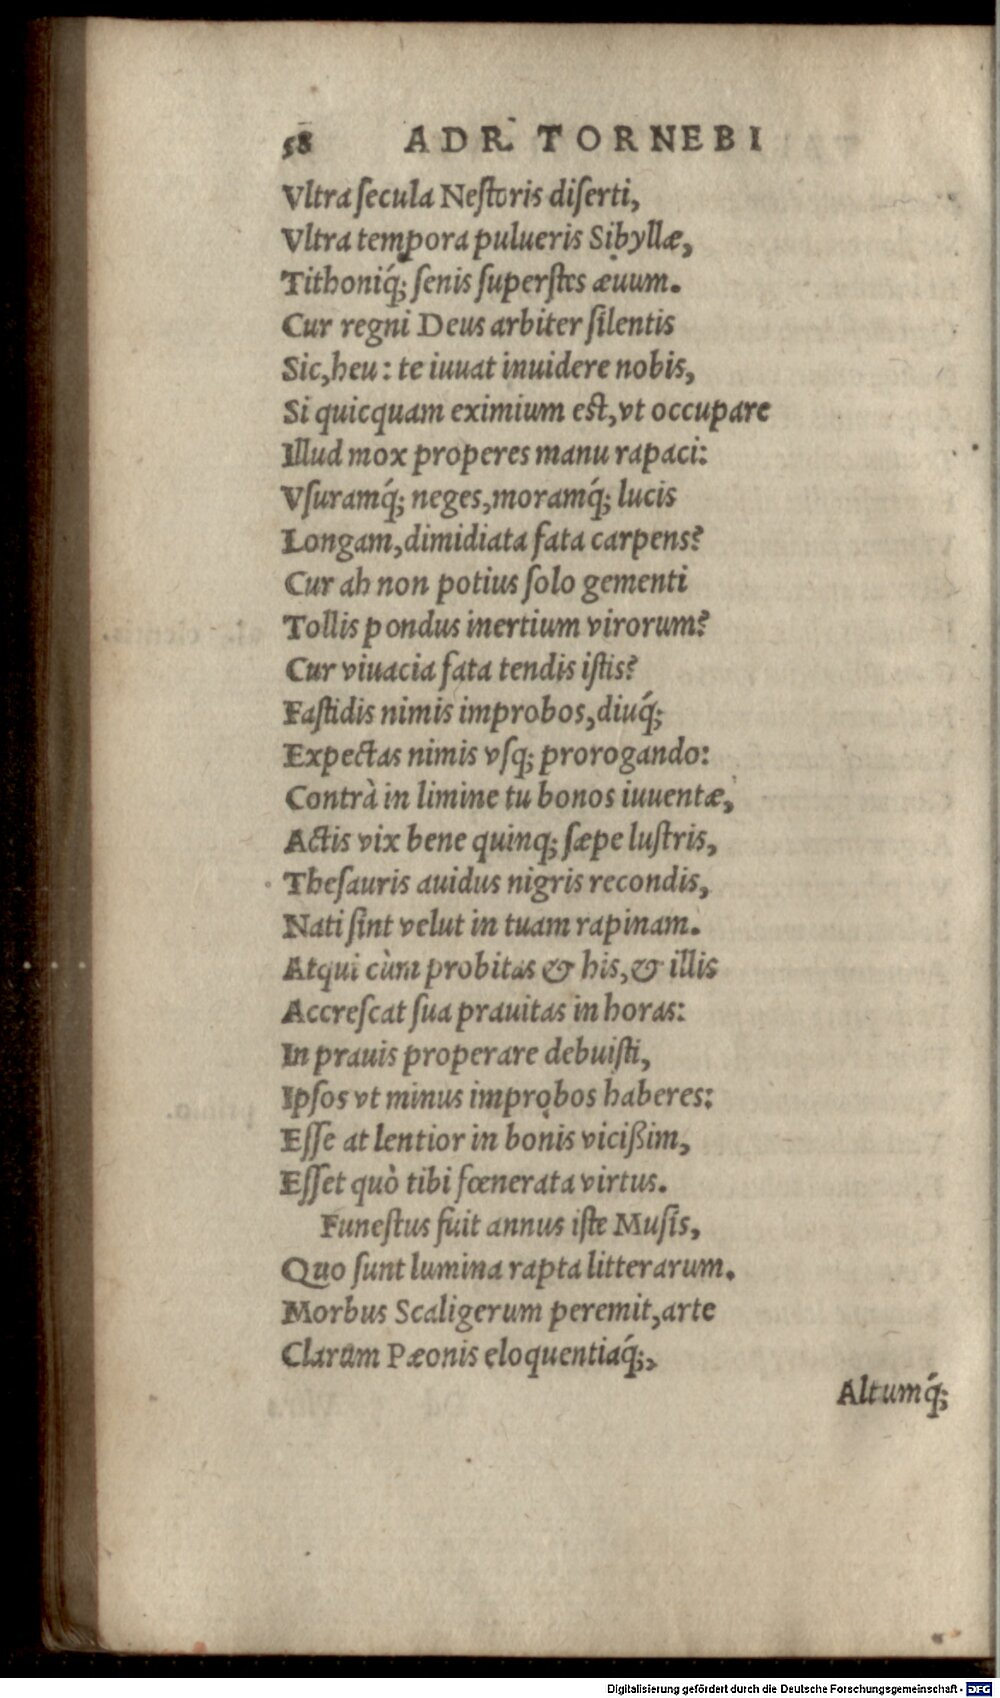 58 ADR. TORNEBI
Vltra secula Nestoris diserti,
Vltra tempora pulueris Sibyllæ,
Tithoniq́; senis superstes æuum.
Cur regni Deus arbiter silentis
Sic, heu: te iuuat inuidere nobis,
Si quicquam eximium est, vt occupare
Illud mox properes manu rapaci:
Vsuramq́; neges, moramq́; lucis
Longam, dimidiata fata carpens?
Cur ah non potius solo gementi
Tollis pondus inertium virorum?
Cur viuacia fata tendis istis?
Fastidis nimis improbos, diuq́;
Expectas nimis vsq; prorogando:
Contrà in limine tu bonos iuuentæ,
Actis vix bene quinq; sæpe lustris,
Thesauris auidus nigris recondis,
Nati sint velut in tuam rapinam.
Atqui cùm probitas & his, & illis
Accrescat sua prauitas in horas:
In prauis properare debuisti,
Ipsos vt minus improbos haberes:
Esse at lentior in bonis vicißim,
Esset quò tibi fœnerata virtus.
Funestus fuit annus iste Musis,
Quo sunt lumina rapta litterarum.
Morbus Scaligerum peremit, arte
Clarum Pæonis eloquentiaq́;,
Altumq́;
Digitalisierung gefördert durch die Deutsche Forschungsgemeinschaft - DFG